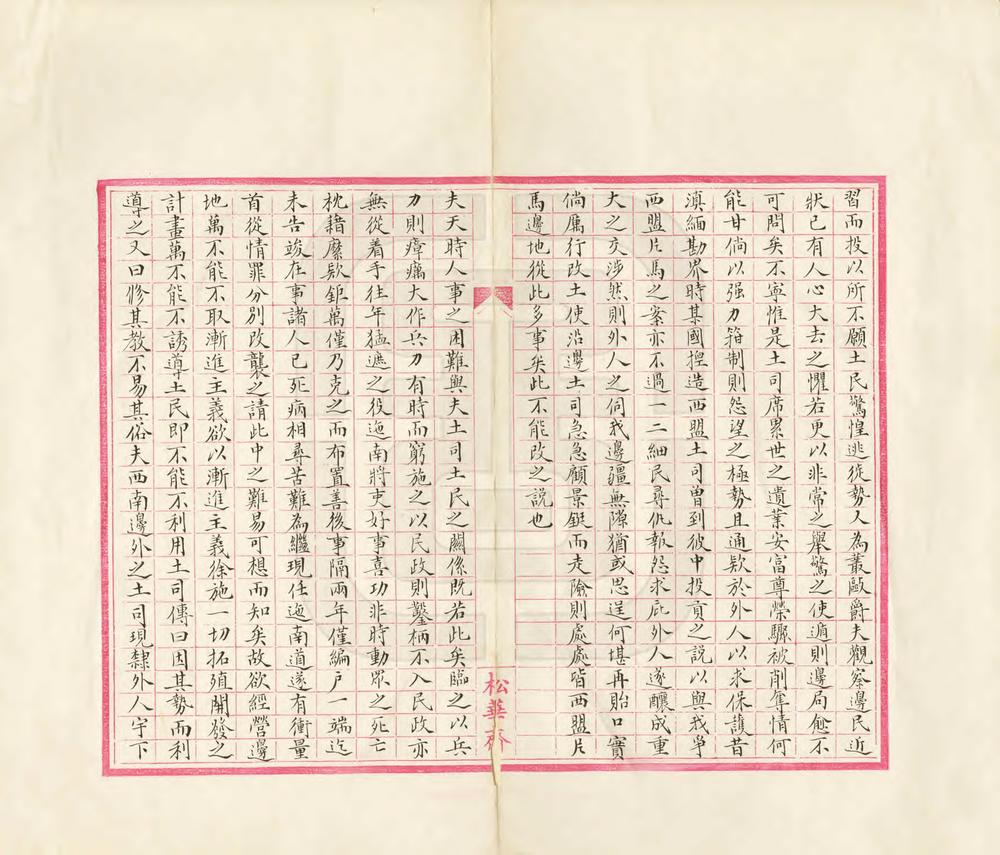 習而投以所不願土民驚惶逃徙勢又為叢敺爵夫觀察邊民近
狀已有人心大去之懼若更以非常之舉驚之使遁則邊局愈不
可問矣不寧惟是土司席累世之遺業安富尊榮驟被削奪情何
能甘倘以强力箝制則怨望之極勢且通欵於外人以求保護昔
滇緬勘界時某國揑造西盟土司曾到彼中投貢之說以與我爭
西盟片馬之案亦不過一二細民尋仇報怨求庇外人遂釀成重
大之交涉然則外人之伺我邊疆無隙猶或思逞何堪再貽口實
倘厲行改土使沿邊土司急急顧景鋌而走險則處處皆西盟片
馬邊地從此多事矣此不能改之說也
松華齋
夫天時人事之困難與夫土司土民之關係既若此矣臨之以兵
力則瘴癘大作兵力有時而窮施之以民政則鑿枘不入民政亦
無從着手往年猛遮之役迤南將吏好事喜功非時動眾之死亡
枕藉糜欵鉅萬僅乃克之而布置善後事隔兩年僅編戶一端迄
未告竣在事諸人已死病相尋苦難為繼現任迤南道遂有衝量
首從情罪分別改襲之請此中之難易可想而知矣故欲經營邊
地萬不能不取漸進主義欲以漸進主義徐施一切拓殖開發之
計畫萬不能不誘導土民即不能不利用土司傳曰因其勢而利
導之又曰修其教不易其俗夫西南邊外之土司現隸外人宇下